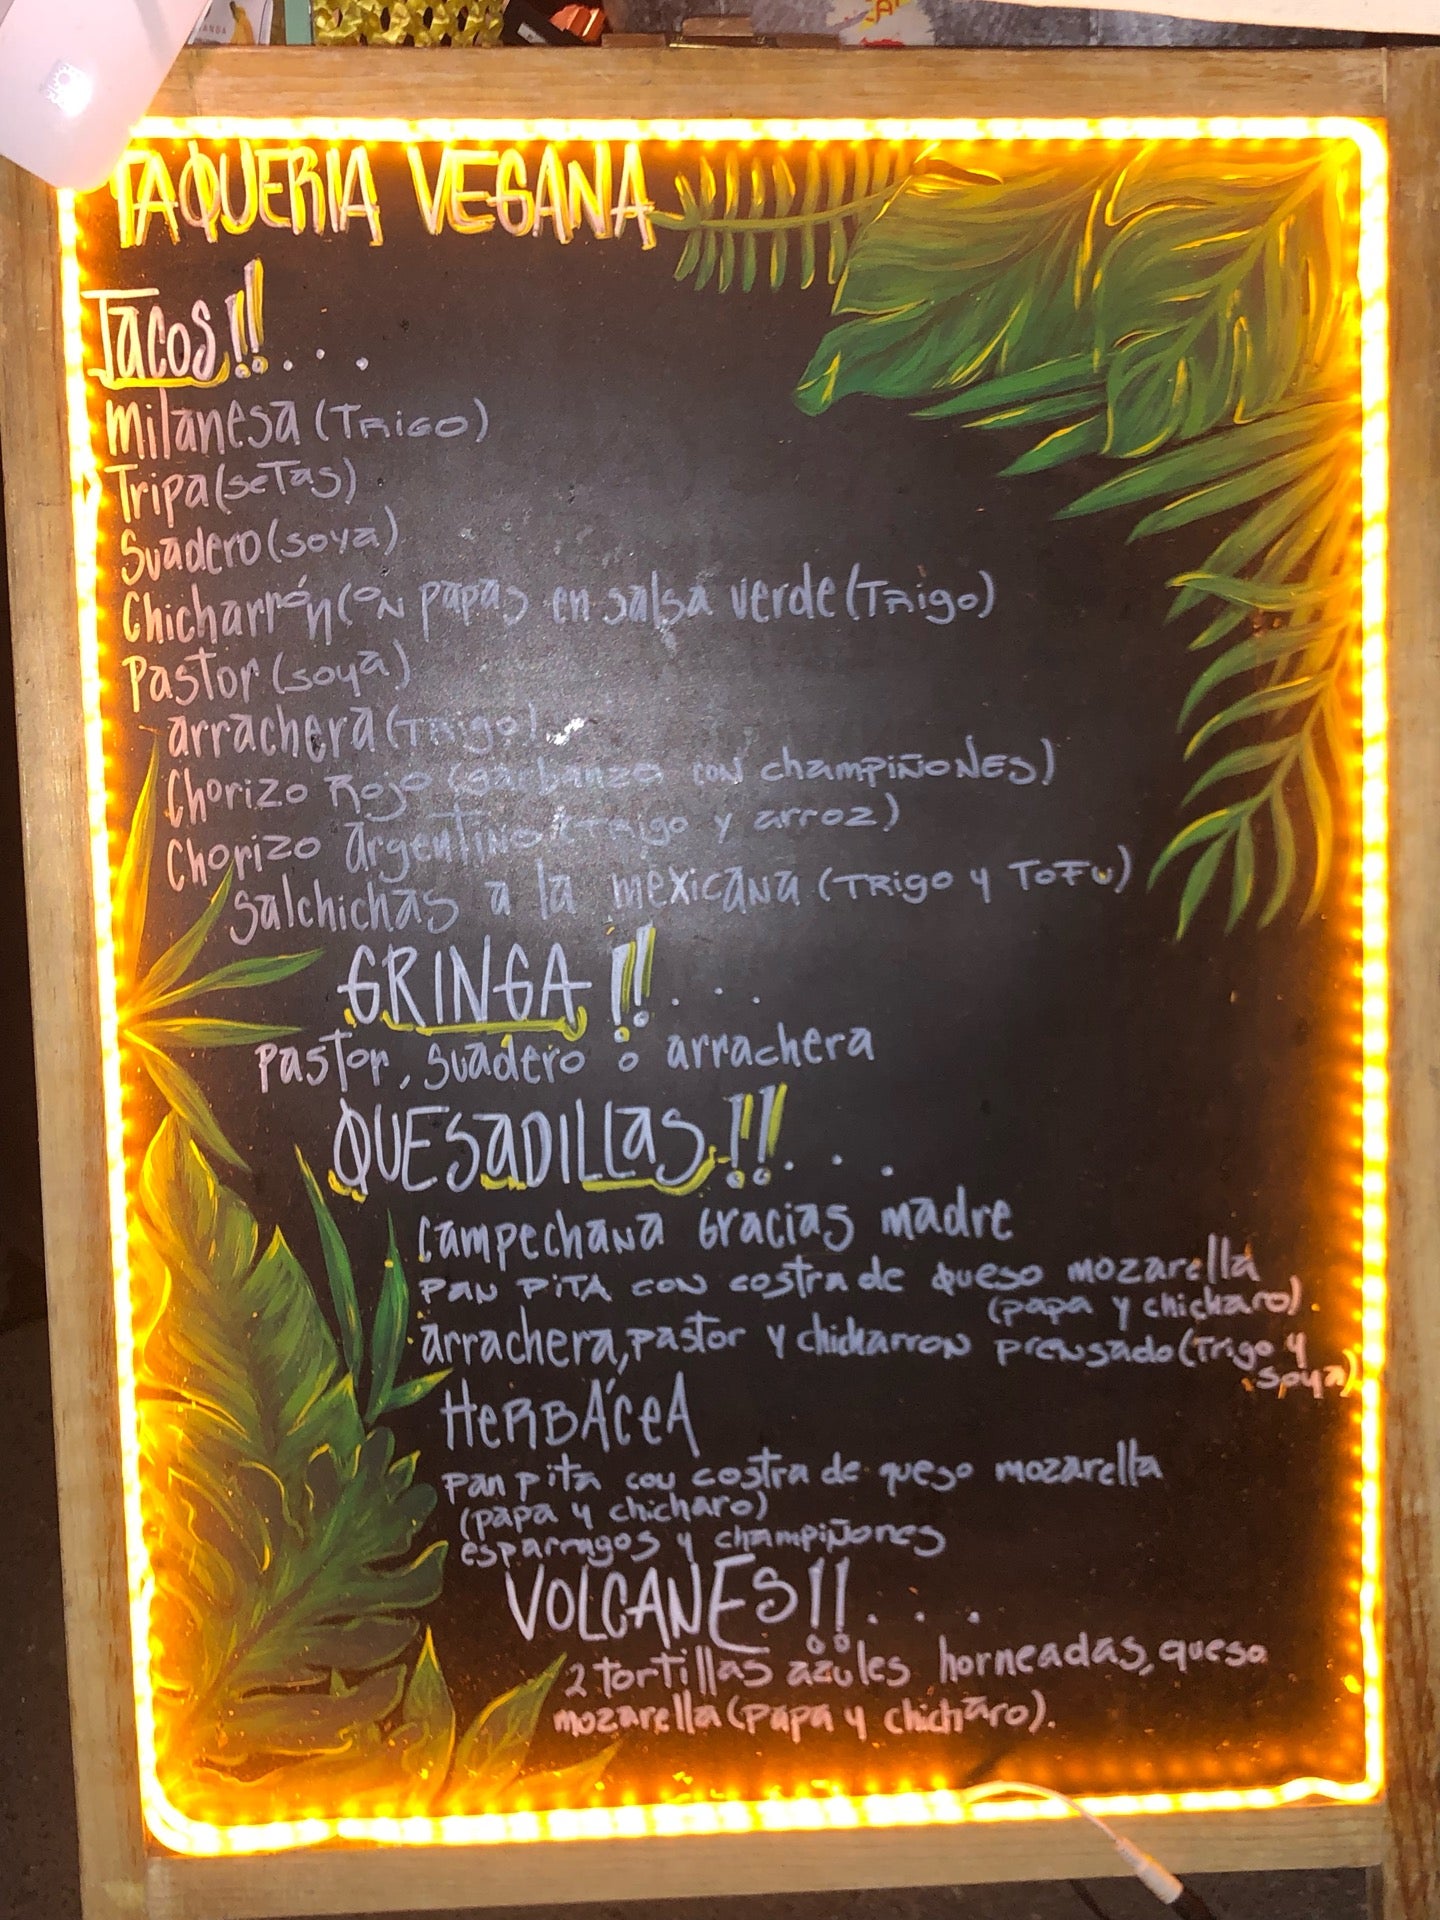 TAQUERIA VEGANA
Tacos!!...
Milanesa (Trigo)
Tripa (setas)
Suadero (soya)
Chicharrón con papas en salsa verde (Trigo)
Pastor (soya)
arrachera (Trigo).
Chorizo Rojo (Garbanzo con champiñones)
Chorizo argentino (Trigo y arroz)
Salchichas a la mexicana (Trigo y Tofu)
GRINGA!!...
Pastor, suadero o arrachera
QUESADILLAS!!...
Campechana Gracias madre
Pan pita con costra de queso mozarella
(papa y chicharo).
arrachera, pastor y chicharron prensado (Trigo y
soya)
HERBÁCEA
pan pita con costra de queso mozarella
(papa y chicharo)
esparragos y champiñones
VOLCANES!!...
2 tortillas azules horneadas, queso
mozarella (papa y chicharo).